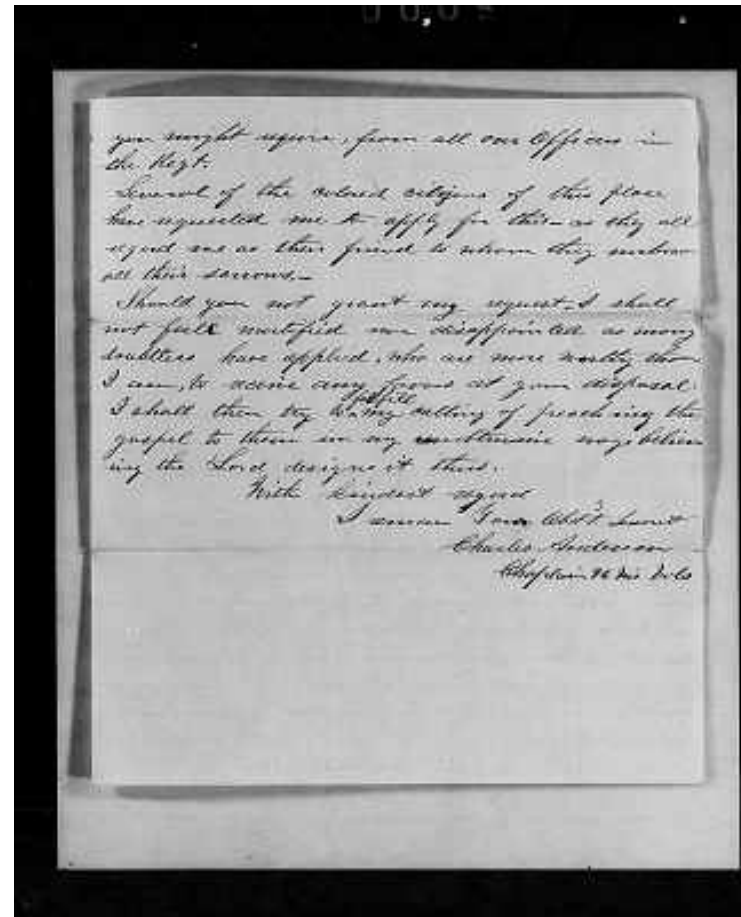 you might require, from all our Officers in
the Regt.
Several of the colored citizens of this place
have requested me to apply for this – as they all
regard me as their friend to whom they unbosom
all their sorrows. –
Should you not grant my request – I shall
not feel mortified nor disappointed as many
doubtless have applied, who are more worthy than
I am, to receive any favors at your disposal.
I shall then try to fulfill my calling of preaching the
gospel to them in my way believ
ing the Lord designs it thus.
With kindest regard
I remain Your Obdt Servt
Charles Anderson
Chaplain Vols